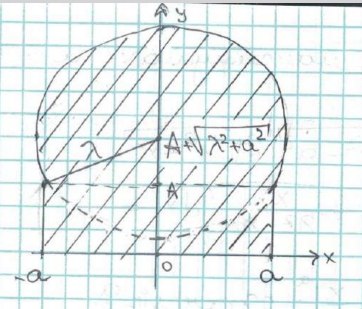 y
λ
A+√λ²+a²
A
-a
0
a
x